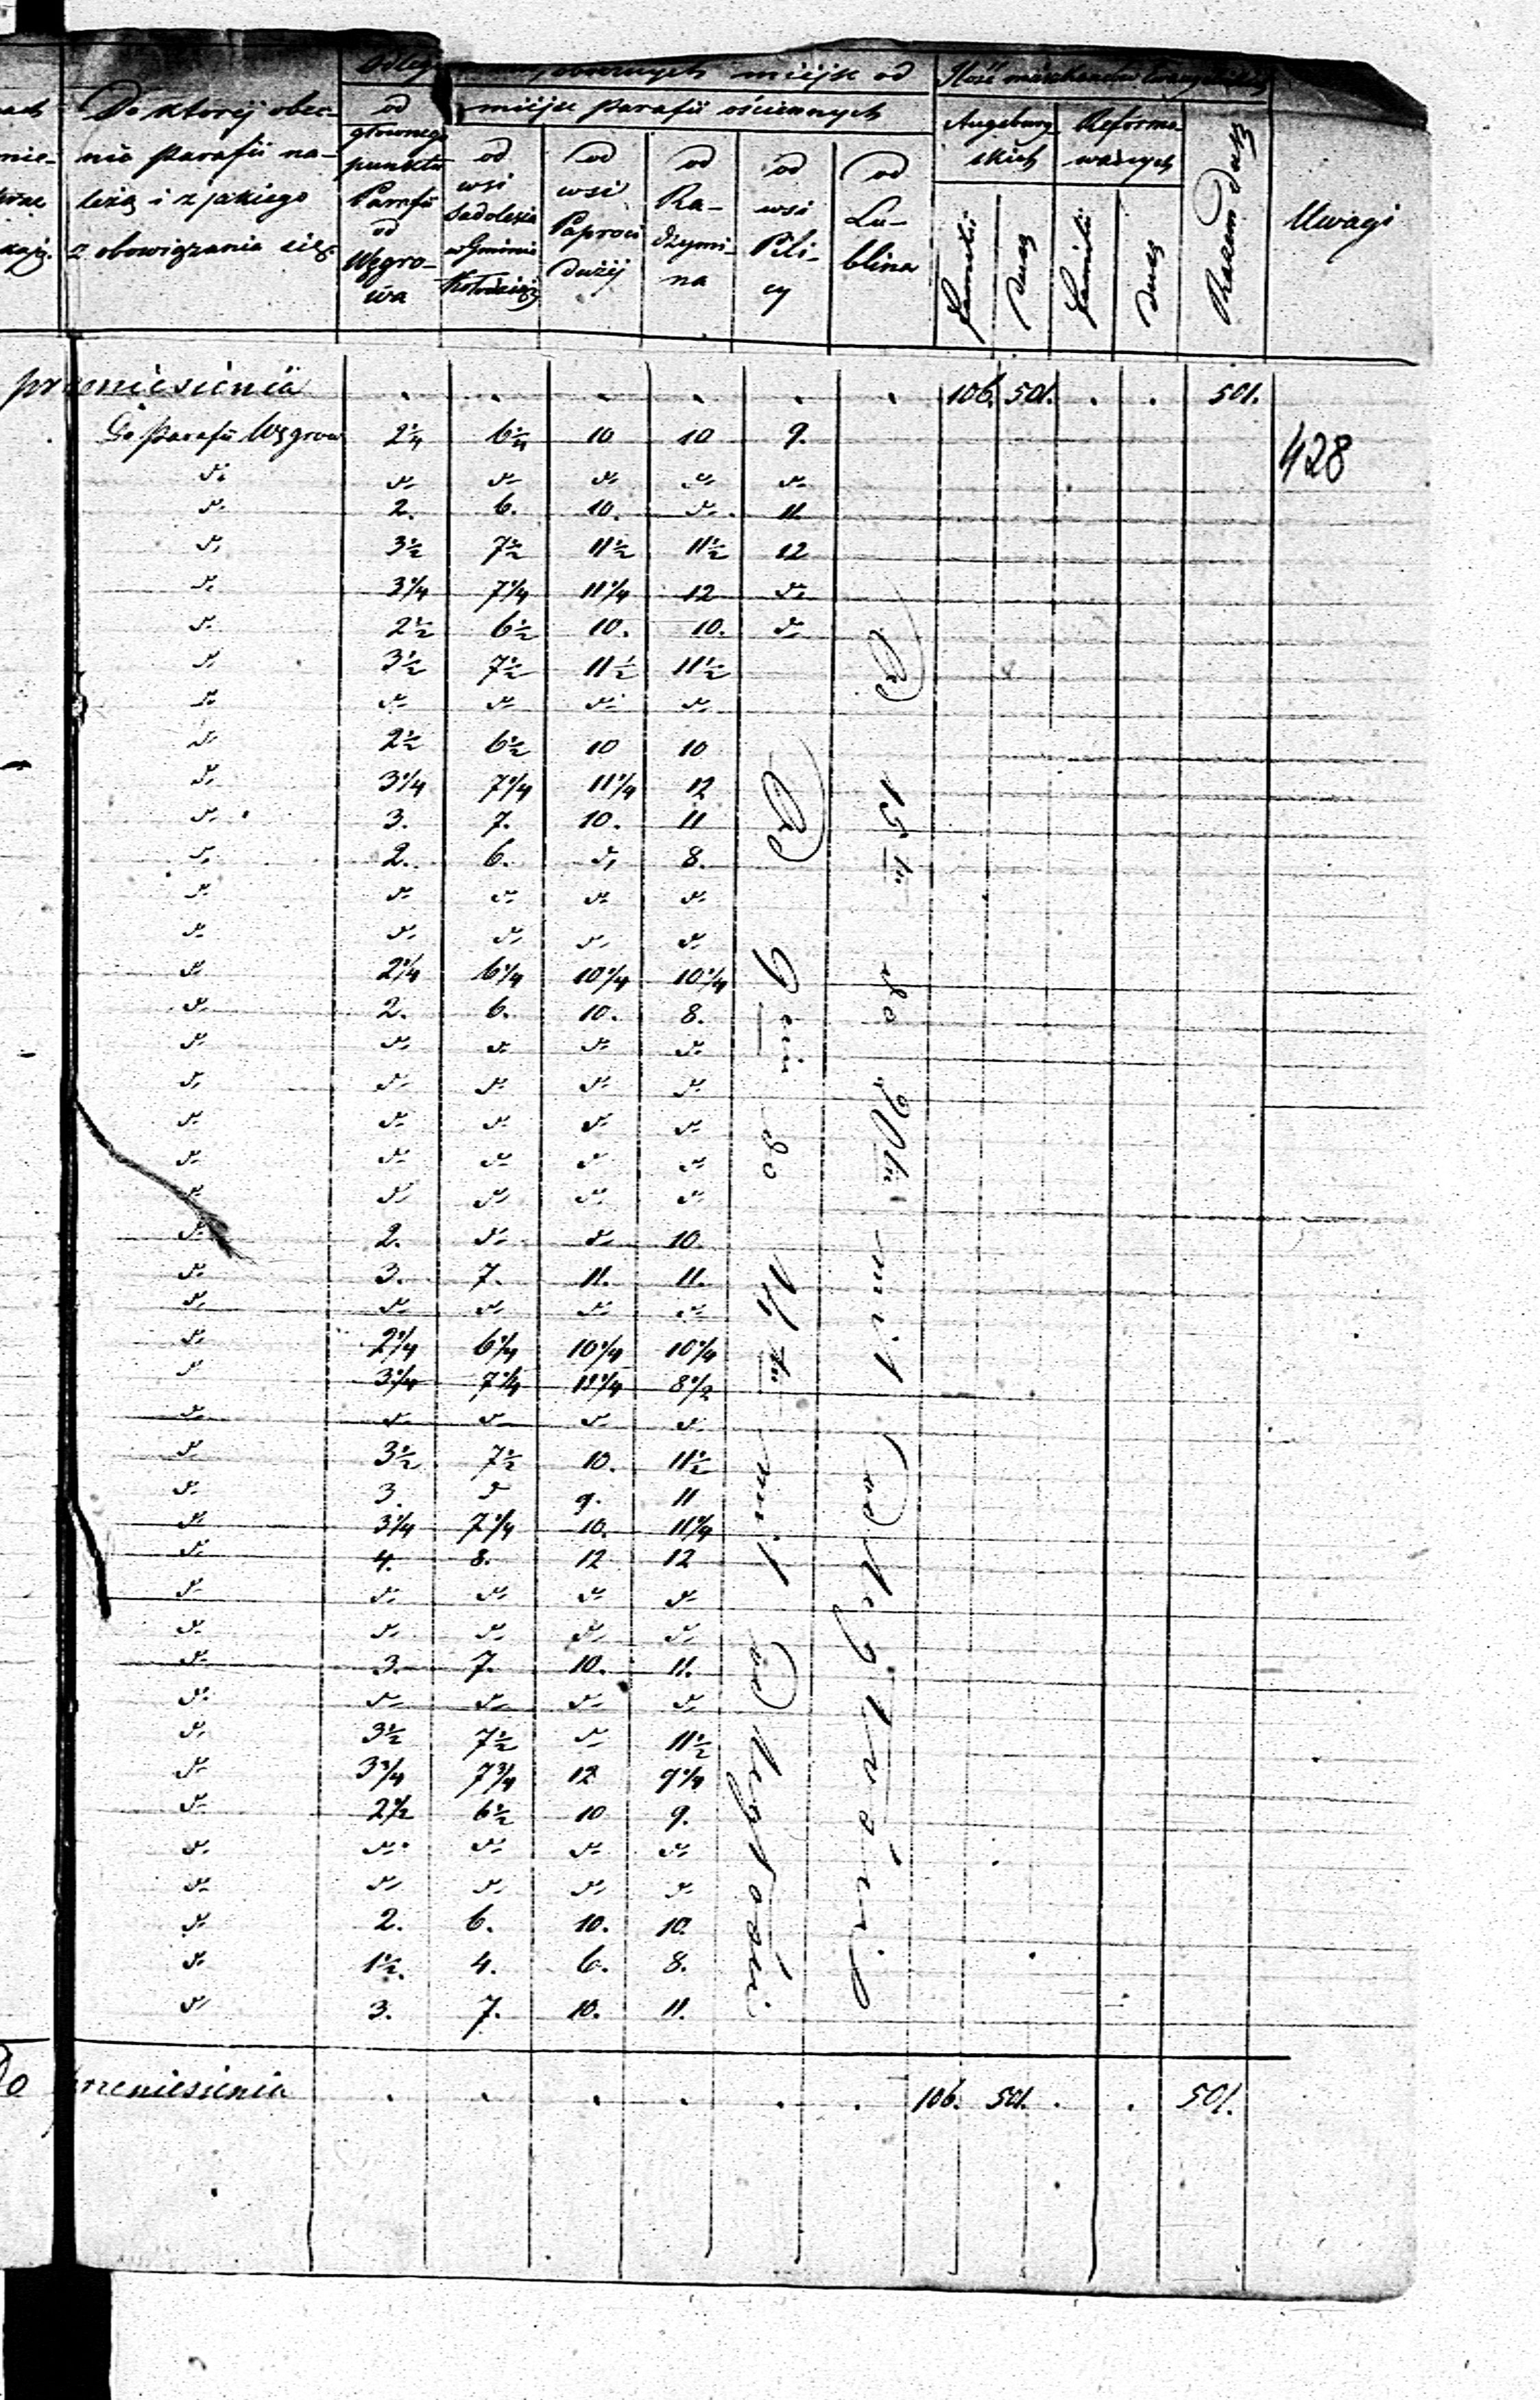 Odleg powyższych miejsc od
Ilość mieszkańców Ewangelickich
Do ktorej obec-
nie Parafii na-
leżą i z jakiego
z obowiązania się.
od
głownego
punktu
Parafii
od
Węgro-
wa
miejsc Parafii ościennych
od
wsi
Sadoleśia
w Gminie
od
wsi
Paproci
Dużéj
od
Ra-
dzymi-
na
od
wsi
Pili-
cy
od
Lu-
blina
Augsburg-
skich
Reformo-
wanych
Familii
Dusz
Familii
Dusz
Razem Dusz
Uwagi
przeniesienia . . . . . . 106. 501. . . 501.
Do Parafii Węgrow 2¼ 6¼ 10 10 9.
428
d° d° d° d° d° d°
d° 2. 6. 10. d° 11.
d° 3½ 7½ 11½ 11½ 12
d° 3¼ 7¼ 11¼ 12 d°
d° 2½ 6½ 10. 10. d°
d° 3½ 7½ 11½ 11½
d° d° d° d° d°
d° 2½ 6½ 10 10
d° 3¼ 7¼ 11¼ 12
d° 3. 7. 10. 11
d° 2. 6. d° 8.
d° d° d° d° d°
d° d° d° d° d°
d° 2¼ 6¼ 10¼ 10¼
d° 2. 6. 10. 8.
d° d° d° d° d°
d° d° d° d° d°
d° d° d° d° d°
d° d° d° d° d°
d° d° d° d° d°
d° 2. d° d° 10.
d° 3. 7. 11. 11.
d° d° d° d° d°
d° 2¼ 6¼ 10¼ 10¼
d° 3¼ 7¼ 12¼ 8½
d° d° d° d° d°
d° 3½ 7½ 10. 11½
d° 3. d° 9. 11
d° 3¼ 7¼ 10. 11¼
d° 4. 8. 12 12
d° d° d° d° d°
d° d° d° d° d°
d° 3. 7. 10. 11.
d° d° d° d° d°
d° 3½ 7½ d° 11½
d° 3¾ 7¾ 12 9¼
d° 2½ 6½ 10 9.
d° d° d° d° d°
d° d° d° d° d°
d° 2. 6. 10. 10.
d° 1½. 4. 6. 8.
d° 3. 7. 10. 11.
Od 9ciu do 14tu mil odległości
Od 15tu do 20tu mil odległości
Do przeniesienia . . . . . . 106. 501. . . 501.